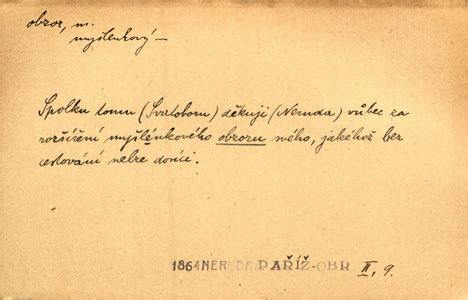 obzor, m.
myšlenkový —
Spolku tomu (Svatoboru) děkuji (Neruda) vůbec za
rozšíření myšlénkového obzoru mého, jakéhož bez
cestování nelze dojíti.
1864 NERUDA, PAŘÍŽ. OBR. II, 9.